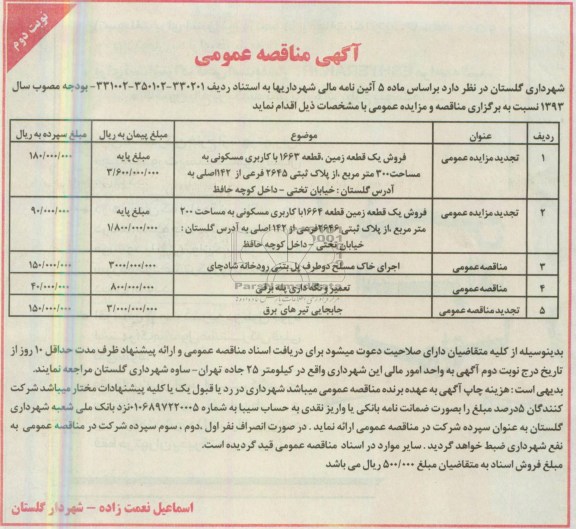 نوبت دوم
آگهی مناقصه عمومی
شهرداری گلستان در نظر دارد براساس ماده ۵ آئین نامه مالی شهرداریها به استناد ردیف ۳۳۰۲۰۱-۳۵۰۱۰۲-۳۳۱۰۰۲- بودجه مصوب سال
۱۳۹۳ نسبت به برگزاری مناقصه و مزایده عمومی با مشخصات ذیل اقدام نماید
ردیف عنوان موضوع مبلغ پیمان به ریال مبلغ سپرده به ریال
۱ تجدید مزایده عمومی فروش یک قطعه زمین ،قطعه ۱۶۶۳ با کاربری مسکونی به مبلغ پایه ۱۸۰/۰۰۰/۰۰۰
مساحت۳۰۰ متر مربع ،از پلاک ثبتی ۲۶۴۵ فرعی از ۱۴۲اصلی به ۳/۶۰۰/۰۰۰/۰۰۰
آدرس گلستان : خیابان تختی - داخل کوچه حافظ
۲ تجدید مزایده عمومی فروش یک قطعه زمین قطعه ۱۶۶۴با کاربری مسکونی به مساحت ۲۰۰ مبلغ پایه ۹۰/۰۰۰/۰۰۰
متر مربع ،از پلاک ثبتی ۲۶۴۶فرعی از ۱۴۲ اصلی به آدرس گلستان : ۱/۸۰۰/۰۰۰/۰۰۰
خیابان تختی - داخل کوچه حافظ
۳ مناقصه عمومی اجرای خاک مسلح دوطرف پل بتنی رودخانه شادچای ۳۰۰۰/۰۰۰/۰۰۰ ۱۵۰/۰۰۰/۰۰۰
۴ مناقصه عمومی تعمیر و نگه داری پله برقی ۸۰۰/۰۰۰/۰۰۰ ۴۰/۰۰۰/۰۰۰
۵ تجدید مناقصه عمومی جابجایی تیر های برق ۳/۰۰۰/۰۰۰/۰۰۰ ۱۵۰/۰۰۰/۰۰۰
بدینوسیله از کلیه متقاضیان دارای صلاحیت دعوت میشود برای دریافت اسناد مناقصه عمومی و ارائه پیشنهاد ظرف مدت حداقل ۱۰ روز از
تاریخ درج نوبت دوم آگهی به واحد امور مالی این شهرداری واقع در کیلومتر ۲۵ جاده تهران- ساوه شهرداری گلستان مراجعه نمایند.
بدیهی است : هزینه چاپ آگهی به عهده برنده مناقصه عمومی میباشد شهرداری در رد یا قبول یک یا کلیه پیشنهادات مختار میباشد شرکت
کنندگان ۵درصد مبلغ را بصورت ضمانت نامه بانکی یا واریز نقدی به حساب سیبا به شماره ۰۱۰۶۸۹۷۲۲۰۰۰۵نزد بانک ملی شعبه شهرداری
گلستان به عنوان سپرده شرکت در مناقصه عمومی ارائه نماید . در صورت انصراف نفر اول ،دوم ، سوم سپرده شرکت در مناقصه عمومی به
نفع شهرداری ضبط خواهد گردید . سایر موارد در اسناد مناقصه عمومی قید گردیده است.
مبلغ فروش اسناد به متقاضیان مبلغ ۵۰۰/۰۰۰ ریال می باشد
اسماعیل نعمت زاده – شهردار گلستان